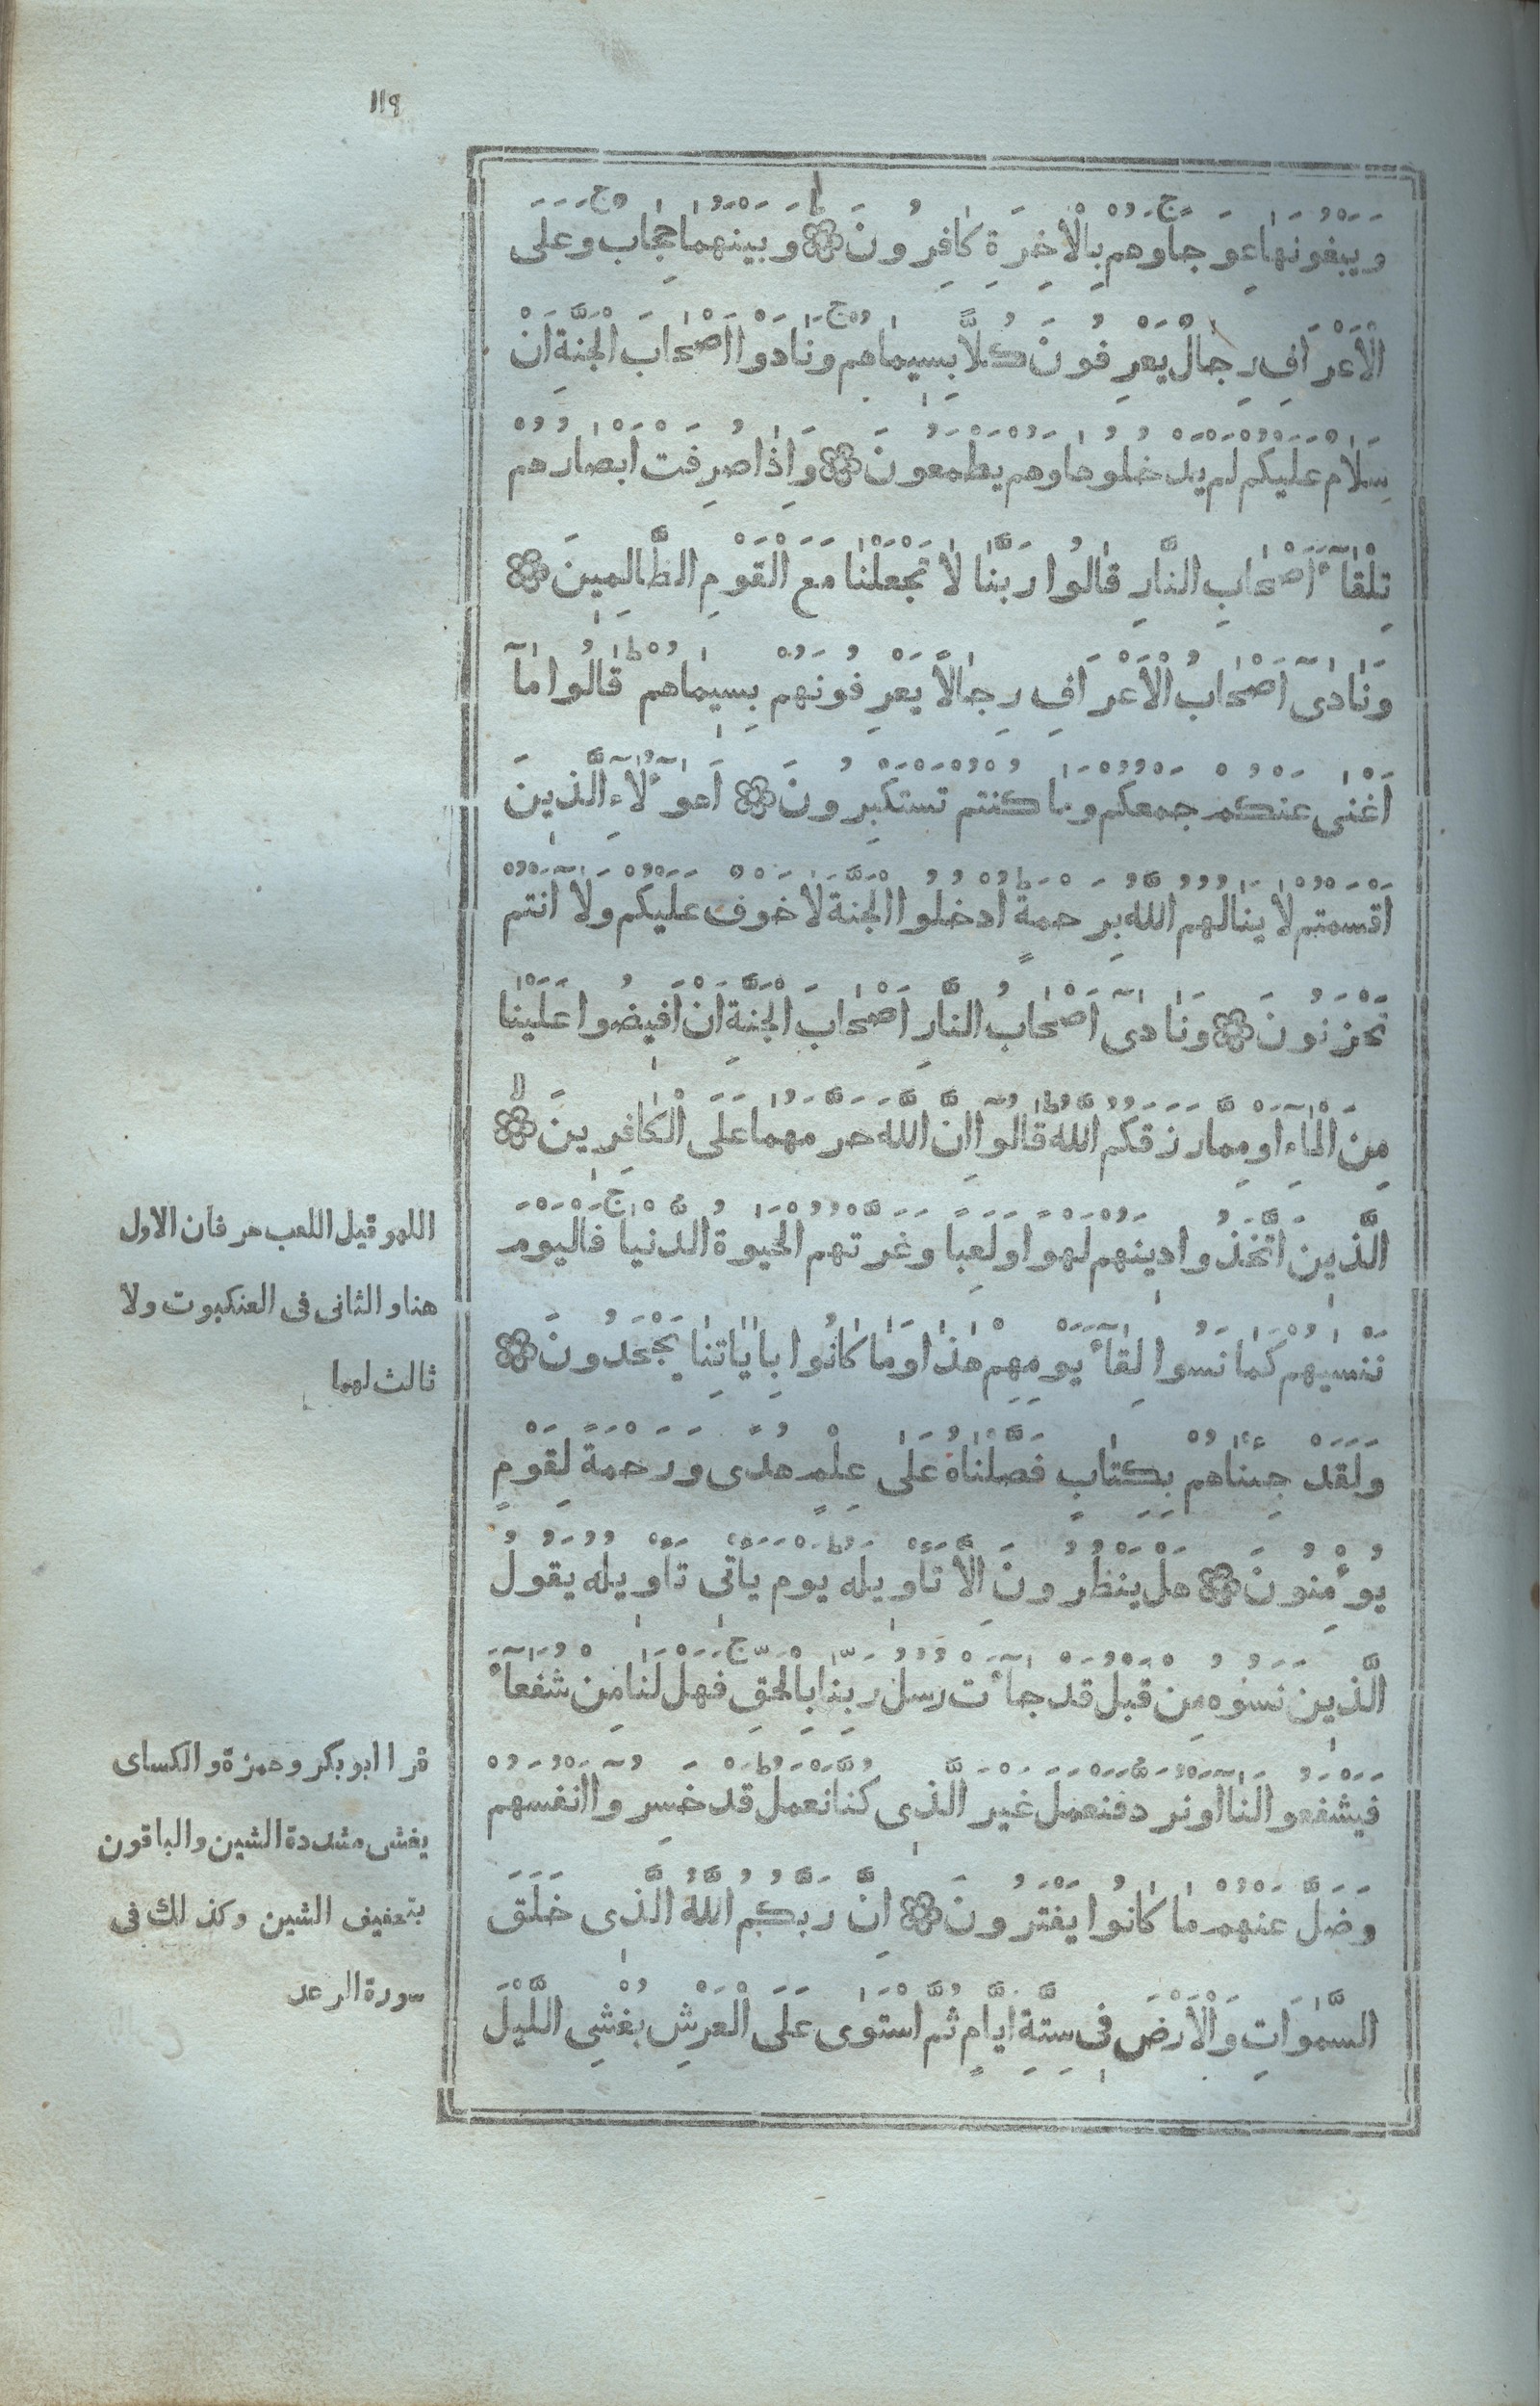 ١١٩
وَيَبْغُونَهَا عِوَجًا وَهُمْ بِالْاٰخِرَةِ كَافِرُونَ ۞ وَبَيْنَهُمَا حِجَابٌ وَعَلَى
الْاَعْرَافِ رِجَالٌ يَعْرِفُونَ كُلًّا بِسِيمَاهُمْ وَنَادَوْا اَصْحَابَ الْجَنَّةِ اَنْ
سَلَامٌ عَلَيْكُمْ لَمْ يَدْخُلُوهَا وَهُمْ يَطْمَعُونَ ۞ وَاِذَا صُرِفَتْ اَبْصَارُهُمْ
تِلْقَآءَ اَصْحَابِ النَّارِ قَالُوا رَبَّنَا لَا تَجْعَلْنَا مَعَ الْقَوْمِ الظَّالِمِينَ ۞
وَنَادٰى اَصْحَابُ الْاَعْرَافِ رِجَالًا يَعْرِفُونَهُمْ بِسِيمَاهُمْ قَالُوا مَآ
اَغْنٰى عَنْكُمْ جَمْعُكُمْ وَمَا كُنْتُمْ تَسْتَكْبِرُونَ ۞ اَهٰٓؤُلَآءِ الَّذِينَ
اَقْسَمْتُمْ لَا يَنَالُهُمُ اللّٰهُ بِرَحْمَةٍ اُدْخُلُوا الْجَنَّةَ لَا خَوْفٌ عَلَيْكُمْ وَلَآ اَنْتُمْ
تَحْزَنُونَ ۞ وَنَادٰٓى اَصْحَابُ النَّارِ اَصْحَابَ الْجَنَّةِ اَنْ اَفِيضُوا عَلَيْنَا
مِنَ الْمَآءِ اَوْ مِمَّا رَزَقَكُمُ اللّٰهُ قَالُوٓا اِنَّ اللّٰهَ حَرَّمَهُمَا عَلَى الْكَافِرِينَ ۞
الَّذِينَ اتَّخَذُوا دِينَهُمْ لَهْوًا وَلَعِبًا وَغَرَّتْهُمُ الْحَيٰوةُ الدُّنْيَا فَالْيَوْمَ
نَنْسٰيهُمْ كَمَا نَسُوا لِقَآءَ يَوْمِهِمْ هٰذَا وَمَا كَانُوا بِاٰيَاتِنَا يَجْحَدُونَ ۞
وَلَقَدْ جِئْنَاهُمْ بِكِتَابٍ فَصَّلْنَاهُ عَلٰى عِلْمٍ هُدًى وَرَحْمَةً لِقَوْمٍ
يُؤْمِنُونَ ۞ هَلْ يَنْظُرُونَ اِلَّا تَأْوِيلَهُ يَوْمَ يَأْتِى تَأْوِيلُهُ يَقُولُ
الَّذِينَ نَسُوهُ مِنْ قَبْلُ قَدْ جَآءَتْ رُسُلُ رَبِّنَا بِالْحَقِّ فَهَلْ لَنَا مِنْ شُفَعَآءَ
فَيَشْفَعُوا لَنَآ اَوْ نُرَدُّ فَنَعْمَلَ غَيْرَ الَّذِى كُنَّا نَعْمَلُ قَدْ خَسِرُوٓا اَنْفُسَهُمْ
وَضَلَّ عَنْهُمْ مَا كَانُوا يَفْتَرُونَ ۞ اِنَّ رَبَّكُمُ اللّٰهُ الَّذِى خَلَقَ
السَّمٰوَاتِ وَالْاَرْضَ فِى سِتَّةِ اَيَّامٍ ثُمَّ اسْتَوٰى عَلَى الْعَرْشِ يُغْشِى اللَّيْلَ
اللهو قبل اللعب حرفان الاول
هنا و الثانى فى العنكبوت ولا
ثالث لهما
قرا ابو بكر وحمزة و الكساى
يغشى مشددة الشين والباقون
بتخفيف الشين وكذلك فى
سورة الرعد